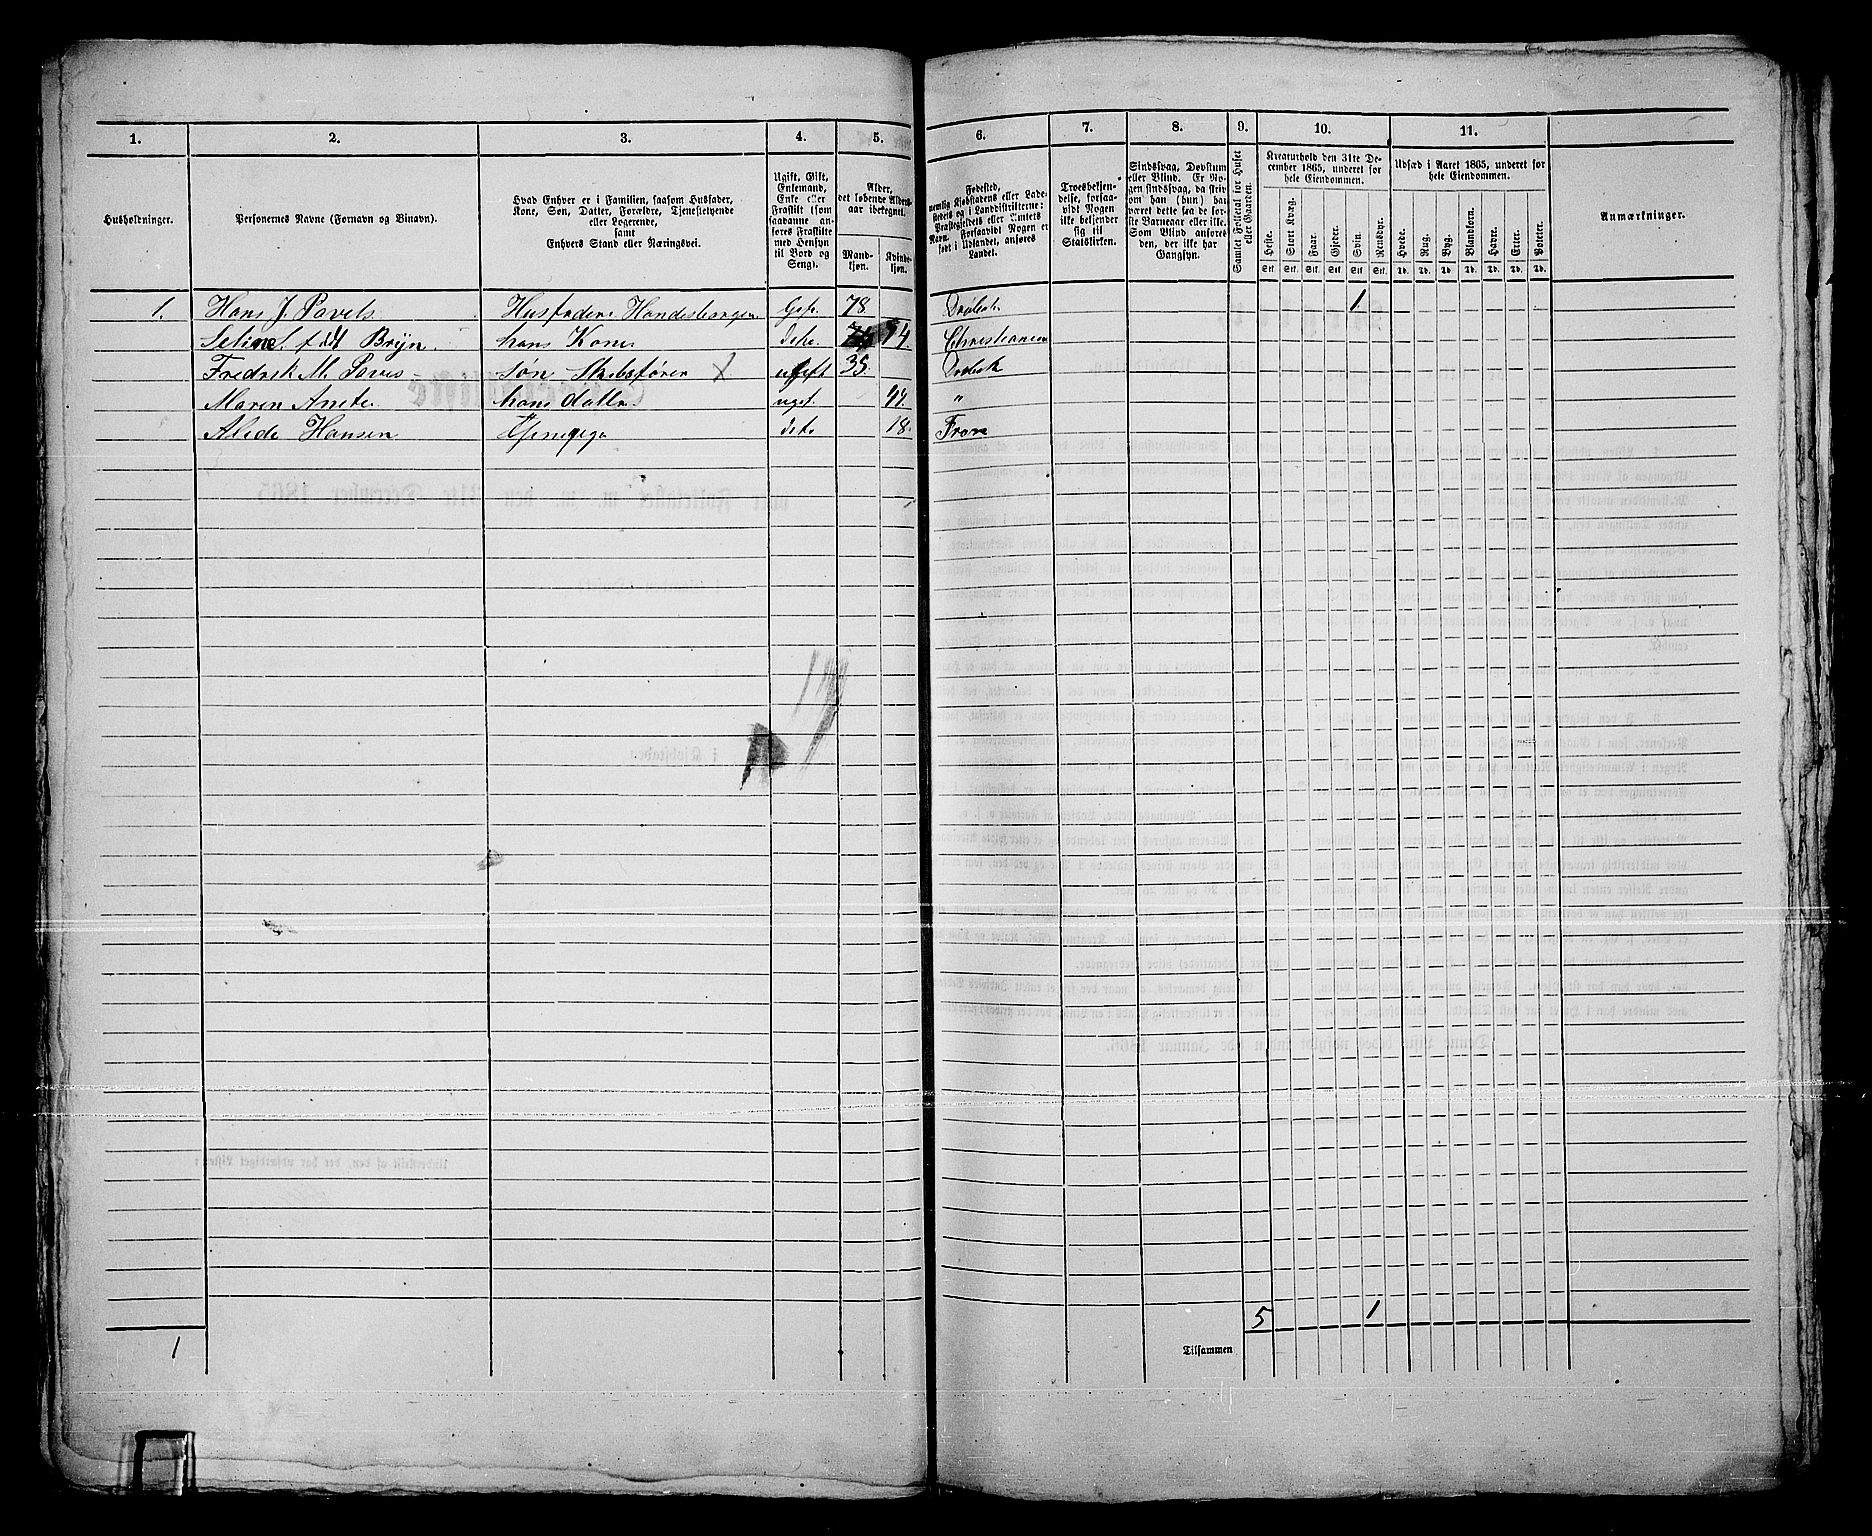 1. 2. 3. 4. 5. 6. 7. 8. 9. 10. 11.
Husholdninger.
Personernes Navne (Fornavn og Binavn).
Hvad Enhver er i Familien, saasom Husfader,
Kone, Søn, Datter, Forældre, Tjenestetyende
eller Logerende,
samt
Enhvers Stand eller Næringsvei.
Ugift, Gift,
Enkemand,
Enke eller
Fraskilt (som
saadanne an-
føres Fraskilte
med Hensyn
til Bord og
Seng).
Alder,
det løbende Alders-
aar iberegnet.
Mand-
kjøn.
Kvinde-
kjøn.
Fødested,
nemlig Kjøbstadens eller Lade-
stedets og i Landdistrikterne:
Præstegjeldets eller Amtets
Navn. Forsaavidt Nogen er
født i Udlandet, anføres
Landet.
Troesbekjen-
delse, forsaa-
vidt Nogen
ikke bekjender
sig til
Statskirken.
Sindssvag, Døvstum
eller Blind. Er No-
gen sindssvag, da skriv
om han (hun) har
været dette fra de før-
ste Barneaar eller ikke.
Som Blind anføres
den, der ikke har
Gangsyn.
Samlet Folketal for Huset
eller Gaarden.
Kreaturhold den 31te De-
cember 1865, underet for
hele Eiendommen.
Heste. Stort Kvæg. Faar. Gjeder. Svin. Rensdyr.
Stk. Stk. Stk. Stk. Stk. Stk.
Udsæd i Aaret 1865, underet for
hele Eiendommen.
Hvede. Rug. Byg. Blandkorn. Havre. Erter. Poteter.
Td. Td. Td. Td. Td. Td. Td.
Anmærkninger.
1. Hans J. Pavels Husfader Gift 78 Drøbak 1
født Bryn hans Kone dito 74 Christiania
Fredrik M. Pavels søn Skibsfører ugift 35 Drøbak
Maren Anete hans datter ugift 44 "
Alede Hansen Tjenepige dito 18 Fron
5 1
1
Tilsammen